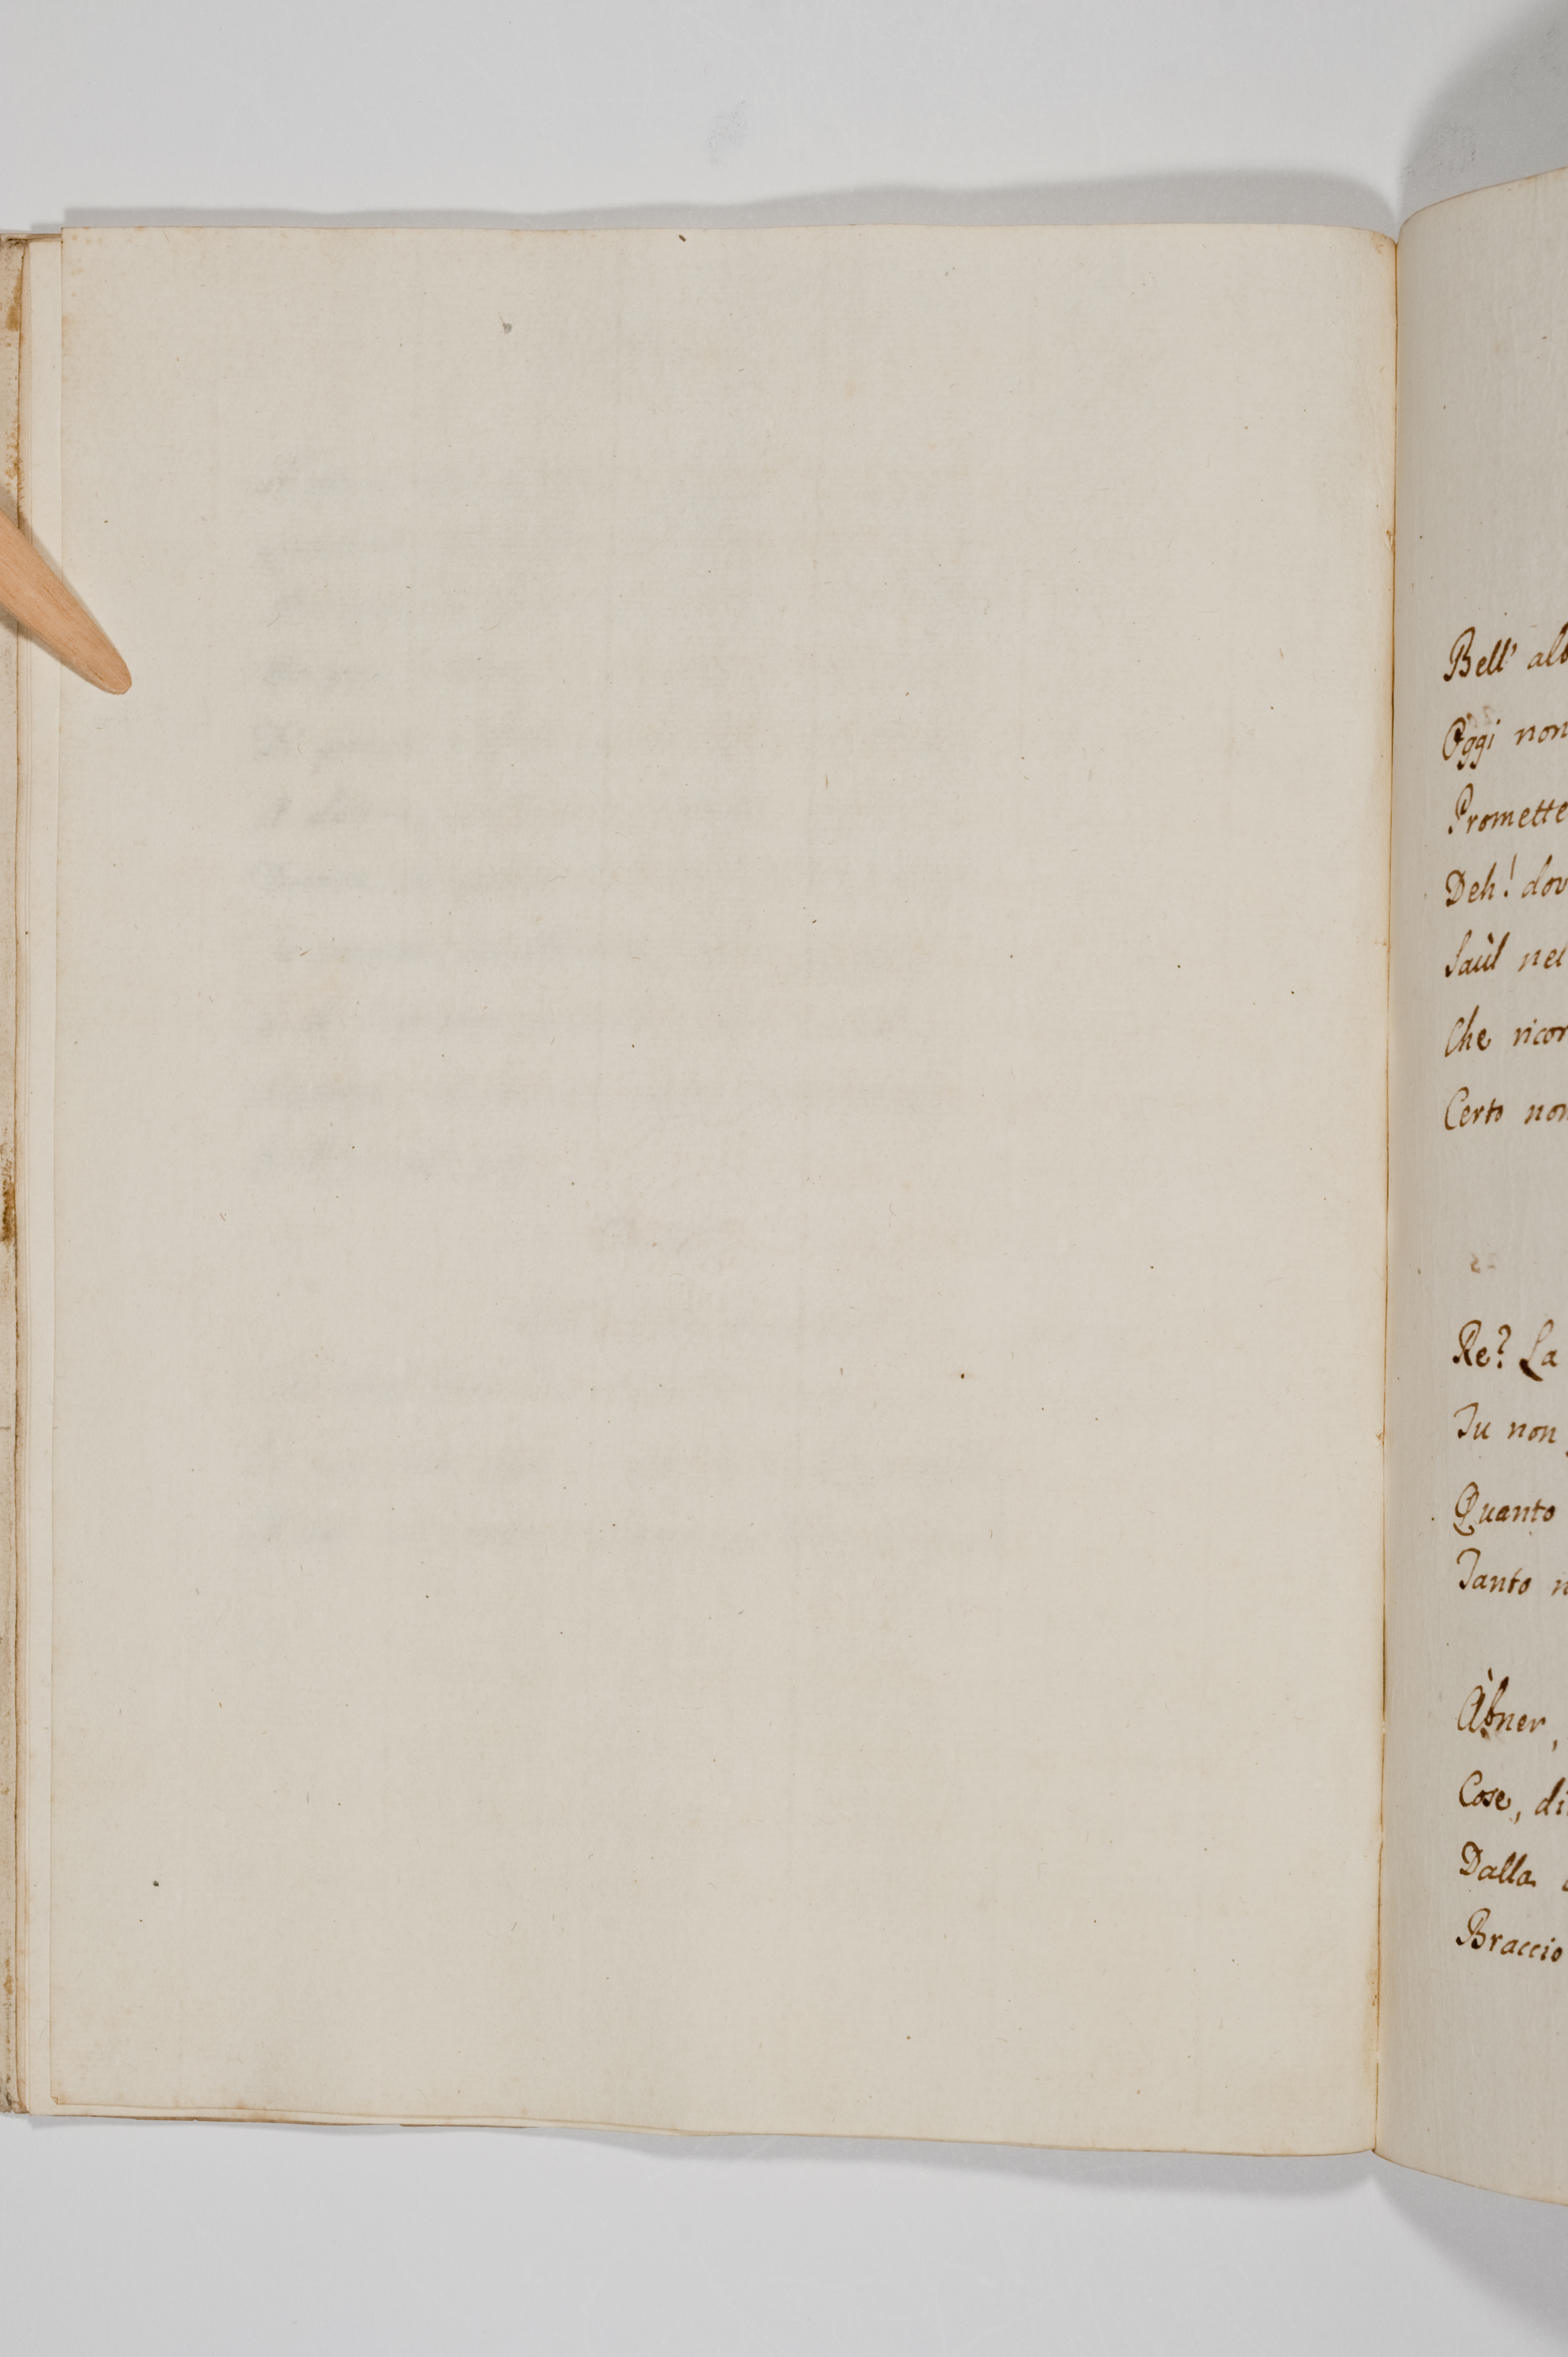 Bell' alb
Oggi non
Promette
Deh! dov
Saùl nel
Che ricor
Certo non
25
Re? La
Tu non
Quanto
Tanto n
Àbner,
Cose, di
Dalla
Braccio